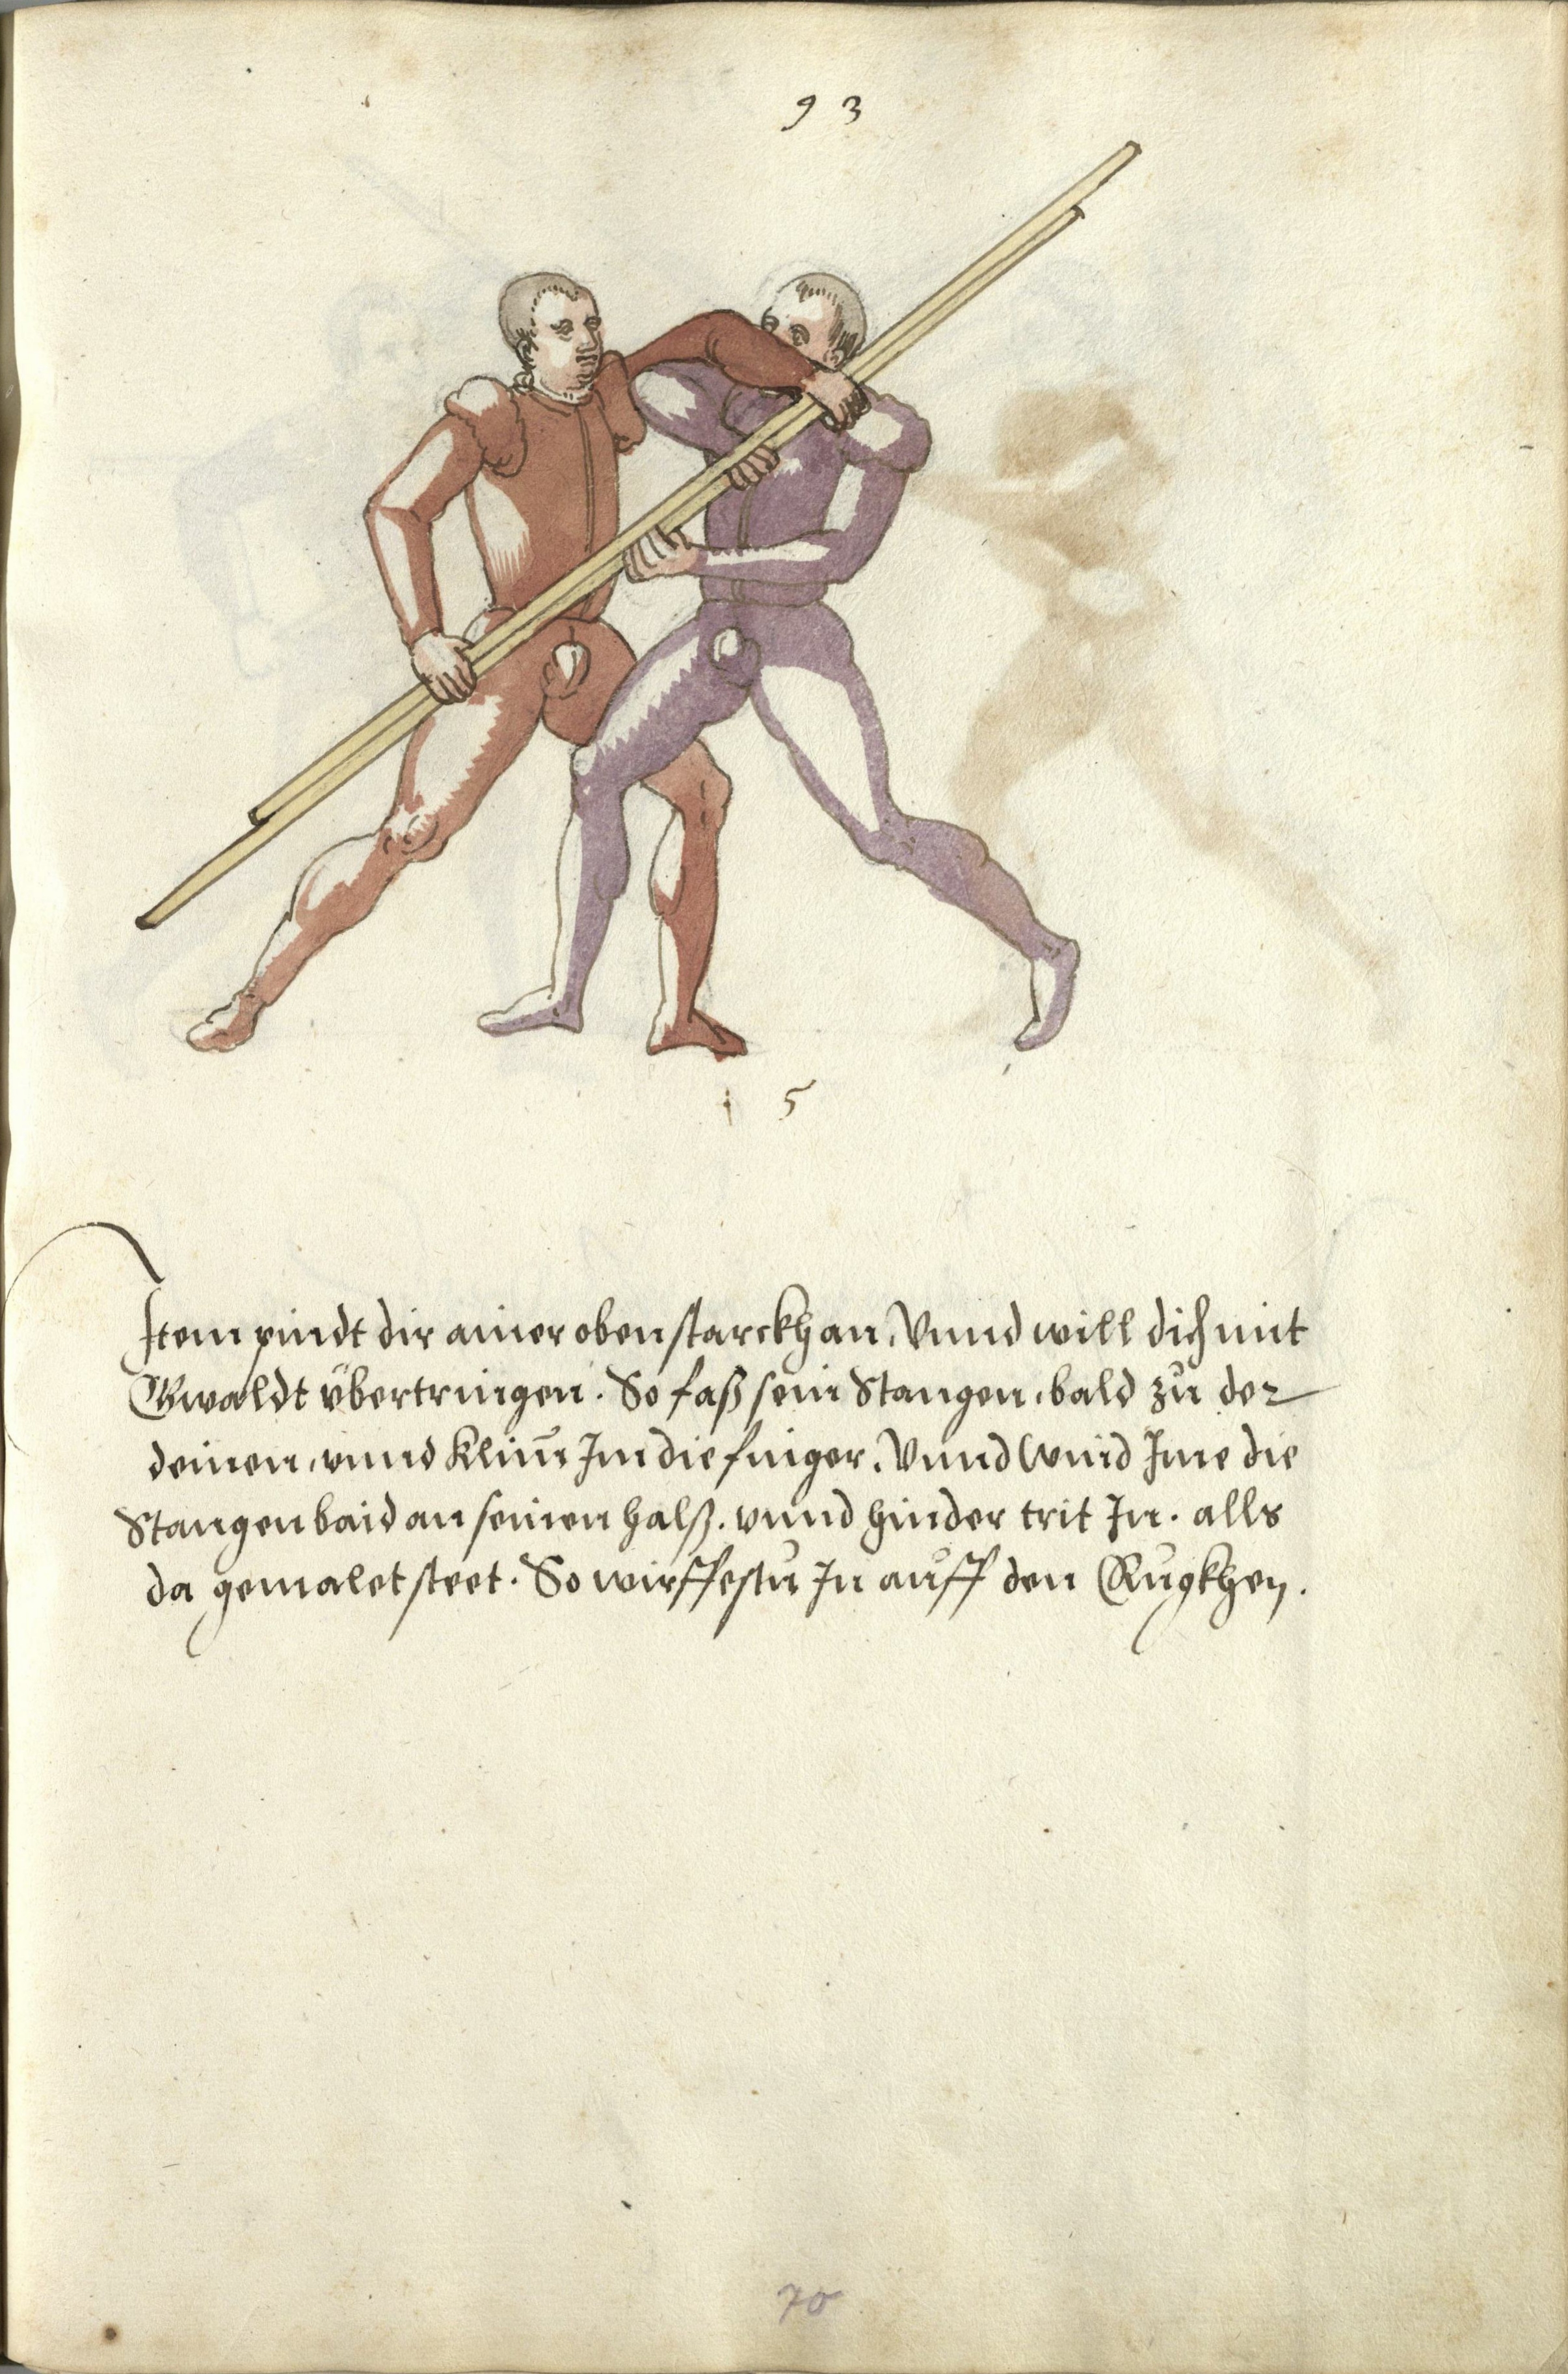 93
5
Item pindt dir ainer oben starckh an, Vnnd will dich mit
Gwaldt übertringen. So faß sein Stangen, bald zů der
deinen, vnnd Klim Im die finger. Vnnd Wind Ime die
Stangen baid an seinen halß. vnnd hinder trit In. alls
da gemalet steet. So wirffestu In auff den Rugkhen.
70